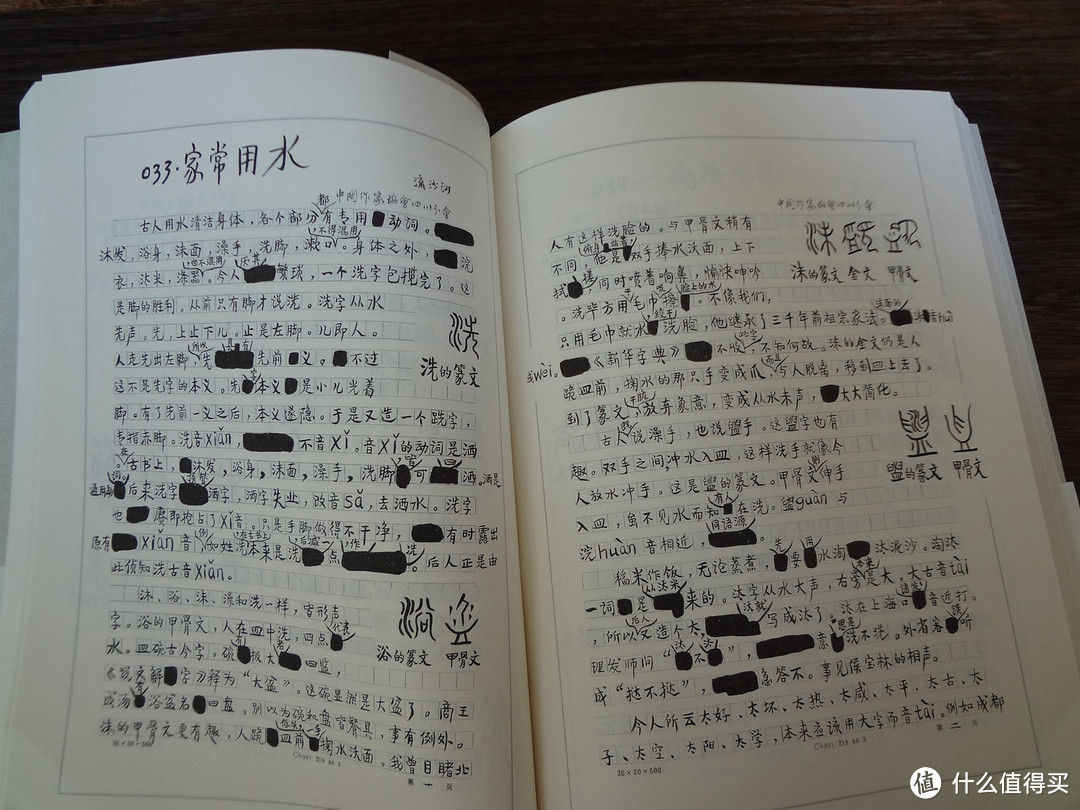 033·家常用水
流沙河
中国作家协会四川分会
都
古人用水清洁身体,各个部分有专用动词。
沐发,浴身,沬面,澡手,洗脚,漱口。身体之外,浣
不得混用
衣,汰米,涤器。今人繁琐,一个洗字包揽完了。这
也不混用 厌其
是脚的胜利。从前只有脚才说洗。洗字从水
先声。先,上止下儿。止是左脚。儿即人。
人走先出左脚,先先前义。不过
所以 有
这不是先字的本义。先本义是小儿光着
脚。有了先前一义之后,本义遂隐。于是又造一个跣字,
专指赤脚。洗音xiǎn,不音xǐ。音xǐ的动词是洒
。古书上,沐发,浴身,沬面,澡手,洗脚可洒。洒是
后来洗字洒字,洒字失业,改音sǎ,去洒水。洗字
也赓即抢占了xǐ音。只是手脚做得不干净,有时露出
原有xiǎn音,如姓洗本来是洗点,后人正是由
此侦知洗古音xiǎn。
洗的篆文
沐、浴、沬、澡和洗一样,皆形声
字。浴的甲骨文,人在皿中洗,四点代表
水。皿碗古今字。碗极大皿,
《说文解字》释为“大盆”。这碗显然是大盆了。商王
成汤浴盆名曰盘。别以为碗和盘皆餐具,事有例外。
沬的甲骨文更有趣,人跪皿前掬水沬面。我曾目睹北
浴的篆文 甲骨文
25×20=500
第一页
中国作家协会四川分会
人有这样洗脸的。与甲骨文稍有
不同,他是双手捧水沬面,上下
俯身
拭搓,同时喷着响鼻,愉快呻吟
。洗毕方用毛巾擦。不像我们,
脸上的水
只用毛巾就水洗脸,他继承了三千年前祖宗家法。沬音huì
或wèi。《新华字典》不收,不知何故。沬的金文仍是人
此字
跪皿前,掬水的那只手变成爪,与人脱离,移到皿上去了。
到了篆文,放弃象意,变成从水未声,大大简化。
干脆
沬的篆文 金文 甲骨文
古人说澡手,也说盥手。这盥字也有
趣。双手之间冲水入皿,这样洗手就像今
人放水冲手。这是盥的篆文。甲骨文伸手
入皿,虽不见水而知有人在洗。盥guàn与
浣huàn音相近,同语源。
盥的篆文 甲骨文
稻米作饭,无论蒸煮,先要用水淘汰泥沙。淘汰
一词是从汰米来的。汰字从水大声,右旁是大。大古音tài
,所以又造个太,写成汰了。汰在上海口音近打。
后人
理发师问“汰不汰”,意思是洗不洗。外省客听
成“挞不挞”,急答不。事见侯宝林的相声。
今人所云太好、太坏、太热、太咸、太平、太古、太
子、太空、太阳、太学,本来应该用大字而音tài。例如成都
25×20=500
第二页
值 什么值得买